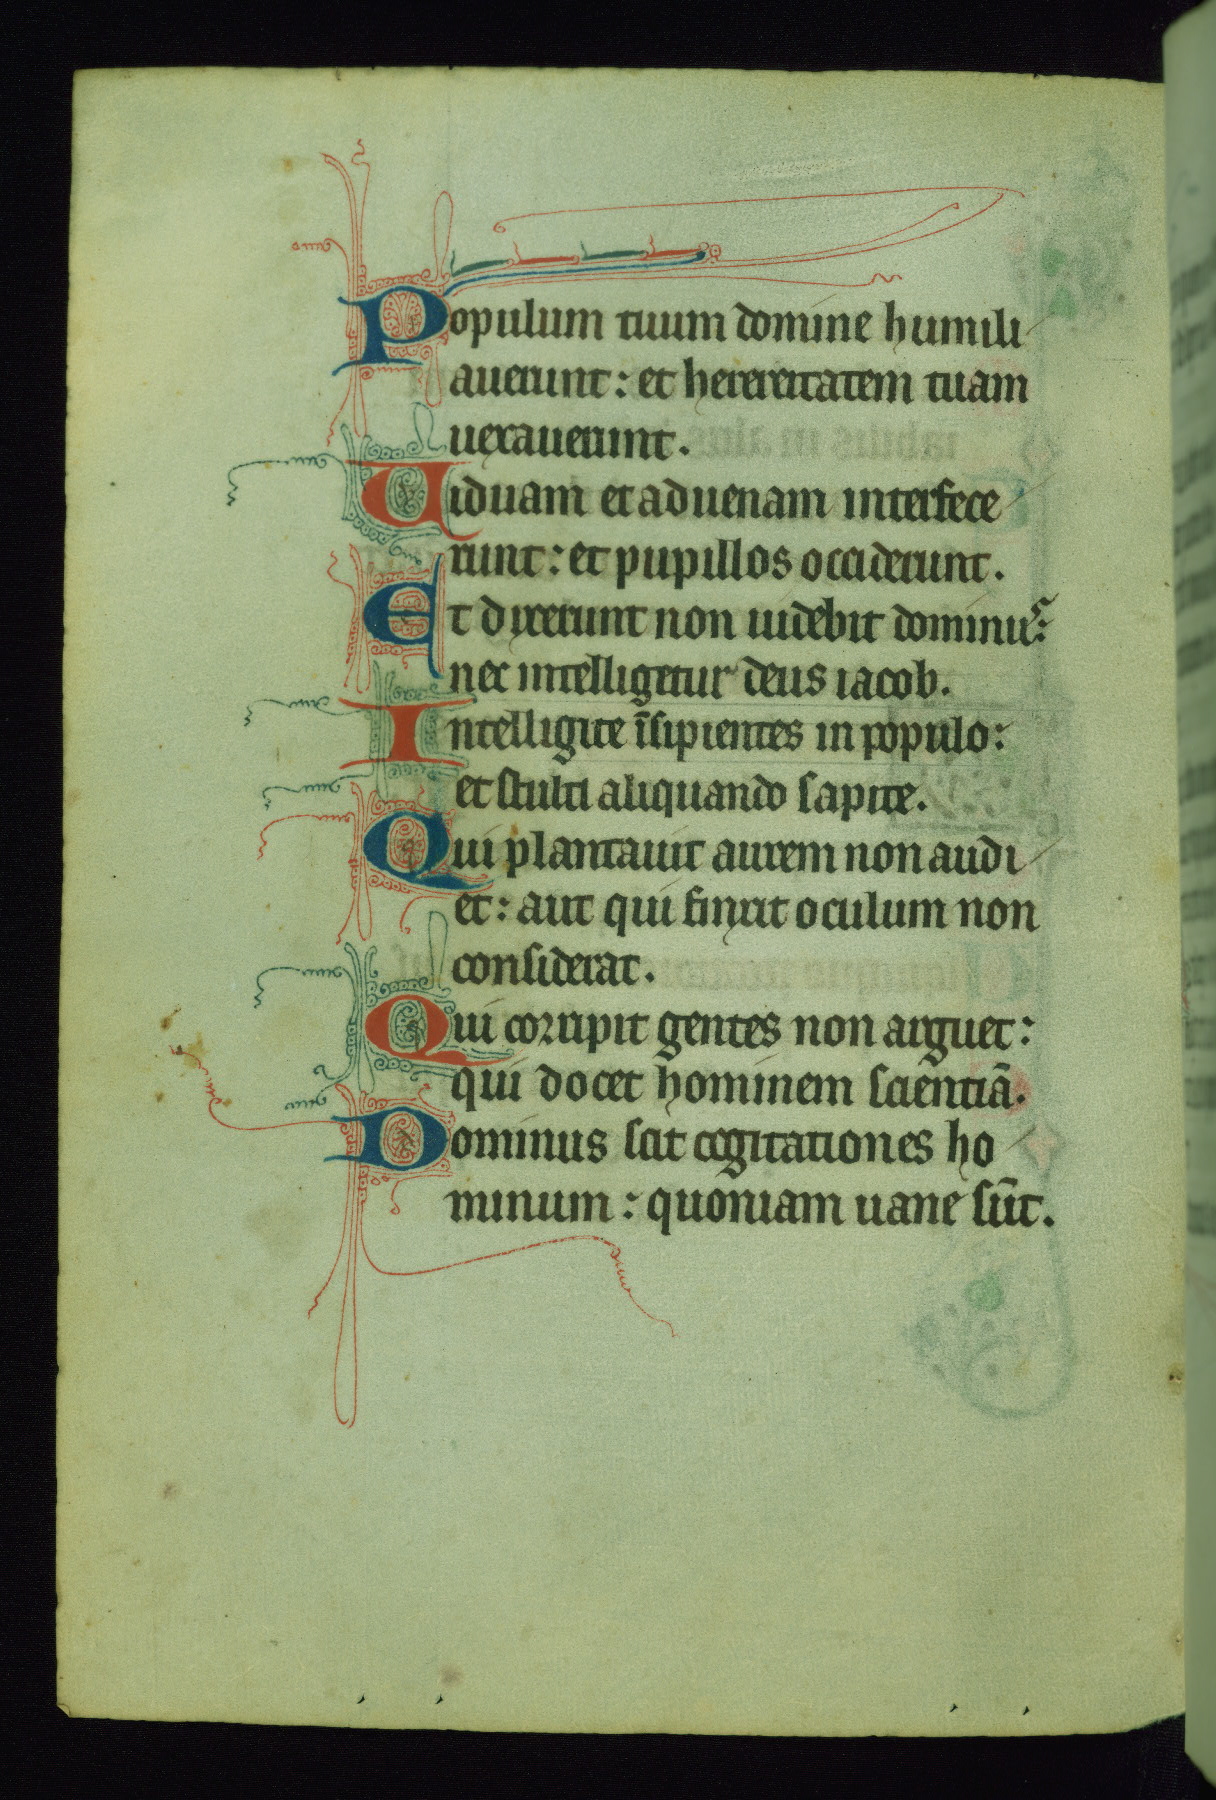 Populum tuum domine humili
auerunt: et herereitatem tuam
uexauerunt.
Uiduam et aduenam interfece
runt: et pupillos occiderunt.
Et dixerunt non uidebit dominus:
nec intelligetur deus iacob.
Intelligite īsipientes in populo:
et stulti aliquando sapite.
Qui plantauit aurem non audi
et: aut qui finxit oculum non
considerat.
Qui corripit gentes non arguet:
qui docet hominem scientiā.
Dominus scit cogitationes ho
minum: quoniam uane sūt.